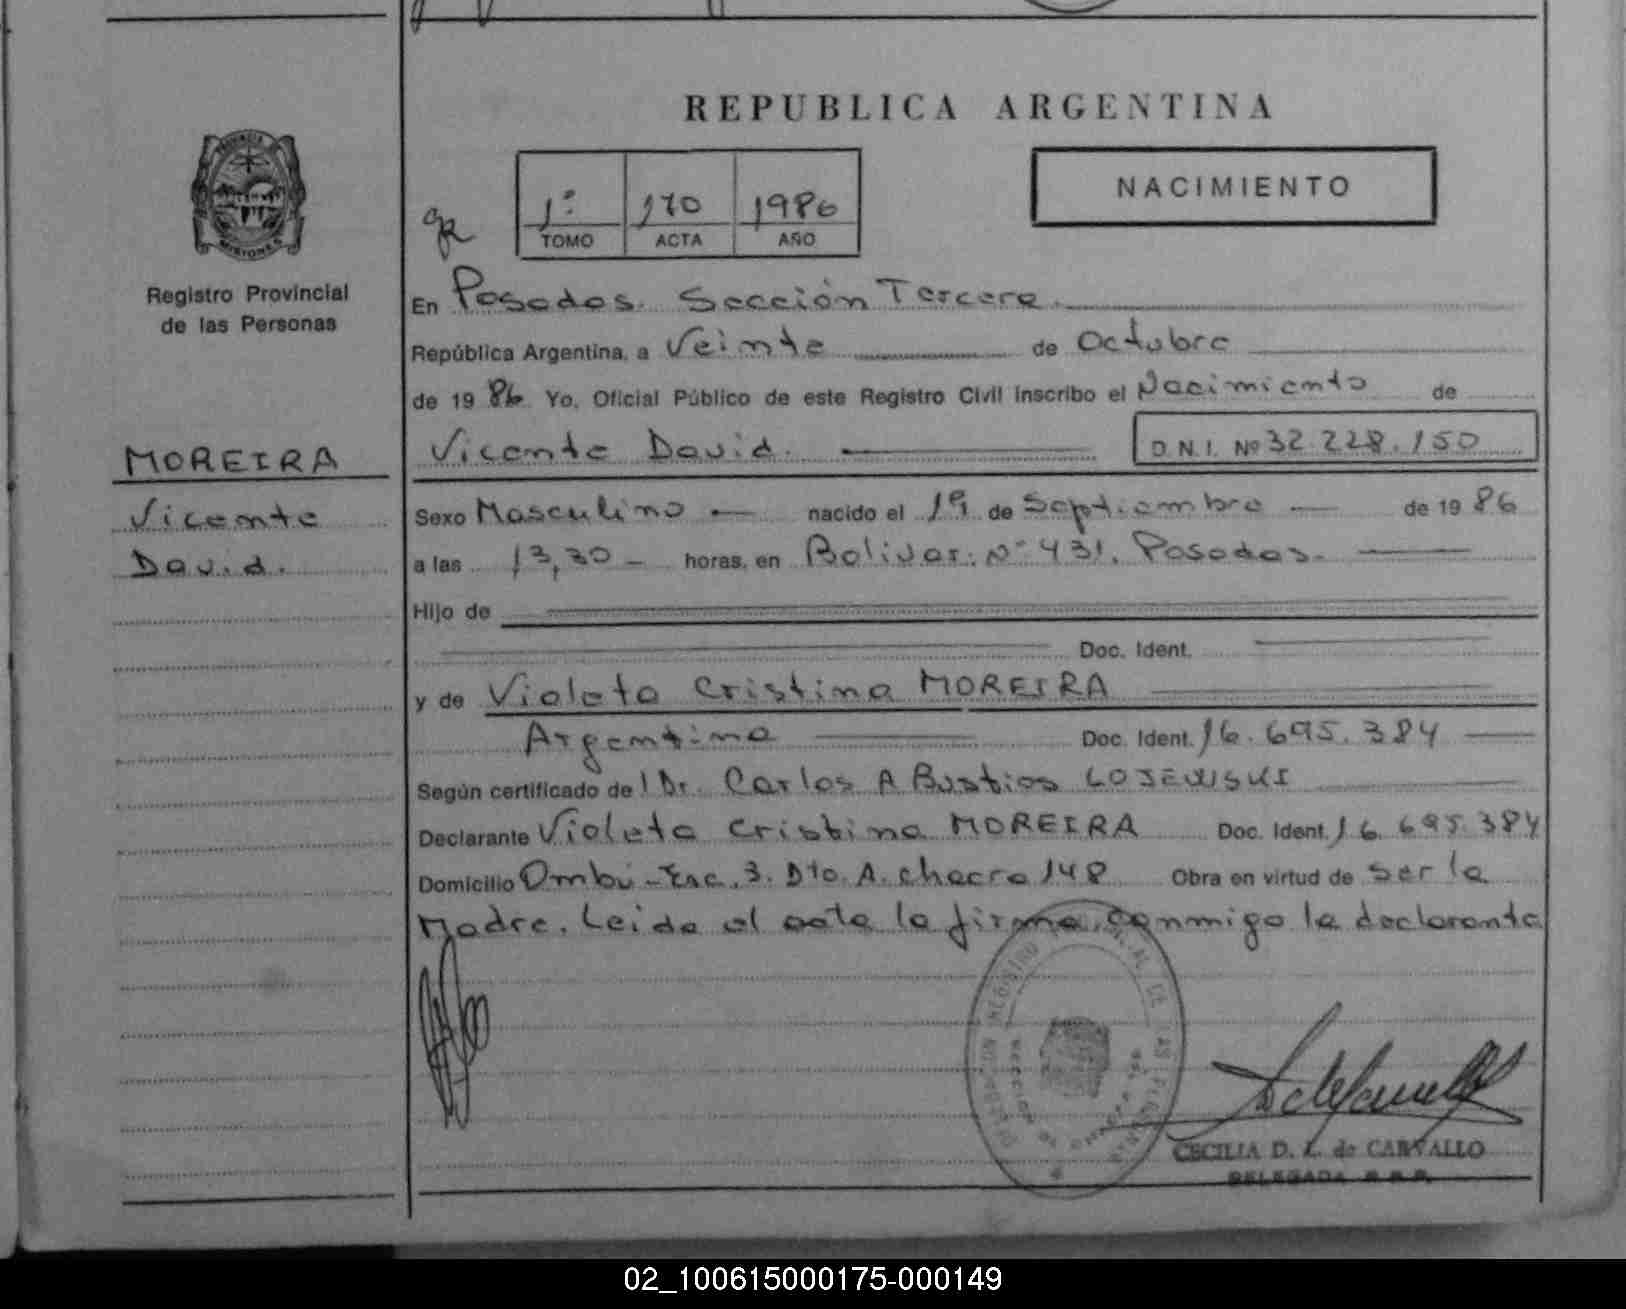 REPUBLICA ARGENTINA
NACIMIENTO
1º 170 1986
TOMO ACTA AÑO
PROVINCIA
MISIONES
Registro Provincial
de las Personas
En Posadas. Sección Tercera.
República Argentina, a Veinte de Octubre
de 19 86 Yo, Oficial Público de este Registro Civil inscribo el Nacimiento de
Vicente David. D.N.I. Nº 32.228.150
MOREIRA
Vicente
David.
Sexo Masculino — nacido el 19 de Septiembre — de 19 86
a las 13,30 — horas, en Bolivar. Nº 431. Posadas.
Hijo de
Doc. Ident.
y de Violeta Cristina MOREIRA
Argentina Doc. Ident. 16.695.384
Según certificado de l Dr. Carlos A Bustios LOJEWSKI
Declarante Violeta Cristina MOREIRA Doc. Ident. 16.695.384
Domicilio Ombú - Esc. 3. Dto. A. chacra 148 Obra en virtud de ser la
Madre. Leída el acta la firma, conmigo la declarante
CECILIA D. L. de CARVALLO
DELEGADA R.R.P.
02_100615000175-000149